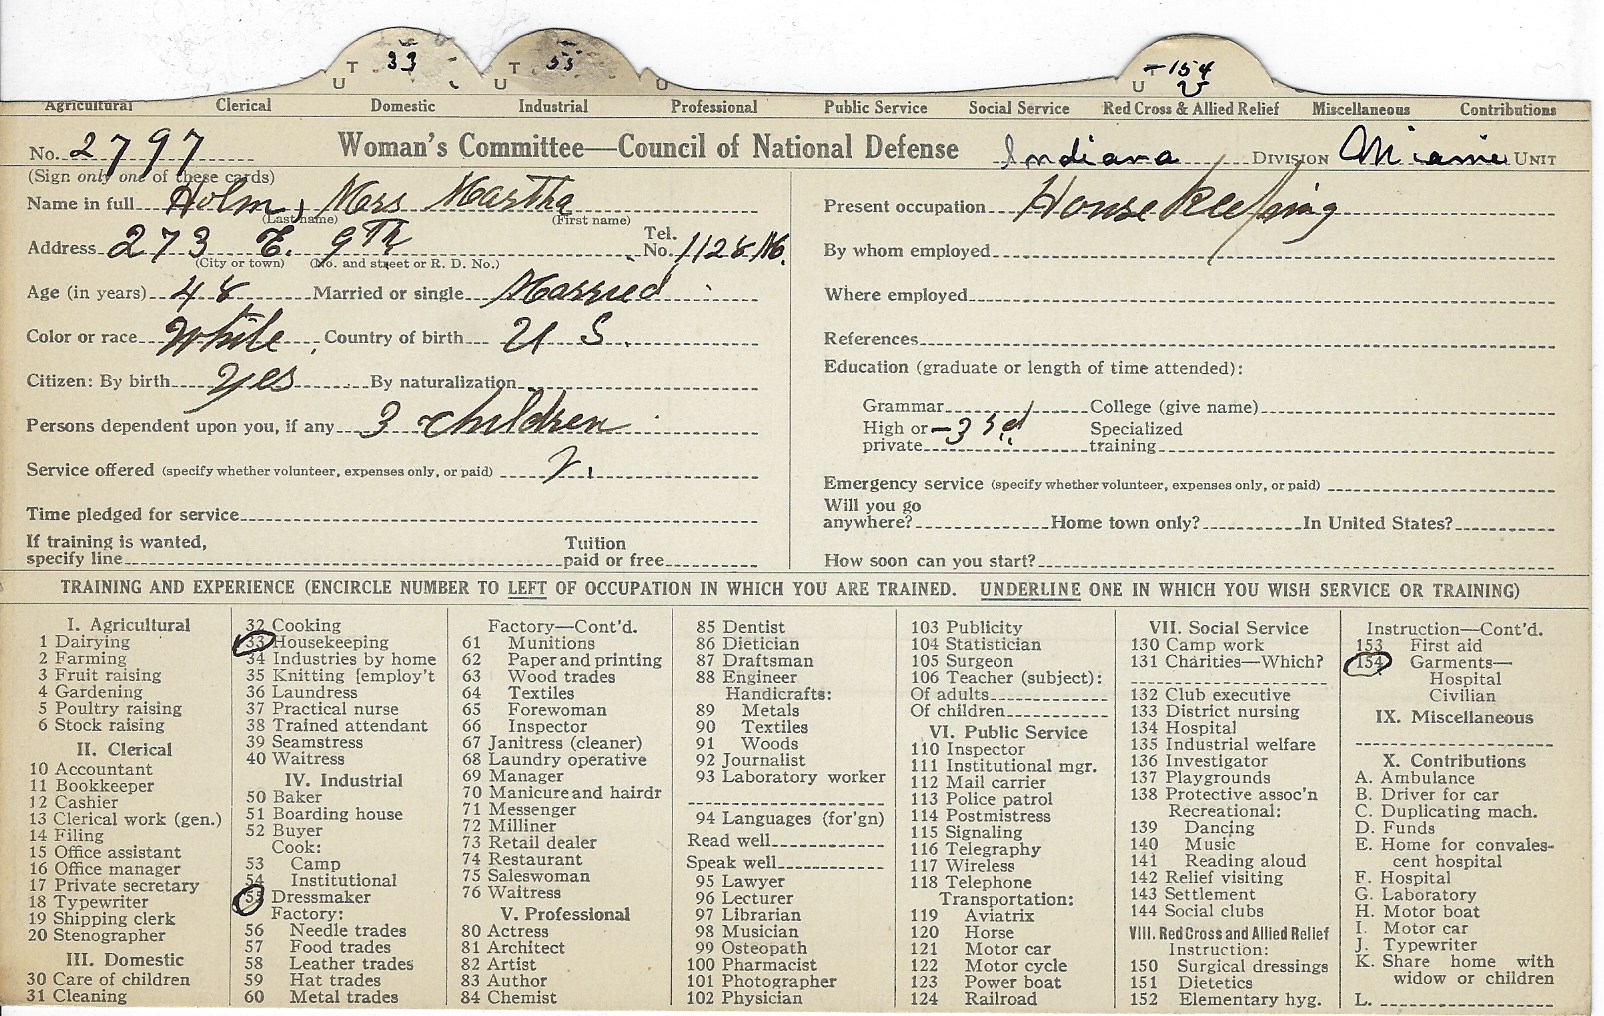 T 33 T 55 T -154
U U O U V
Agricultural Clerical Domestic Industrial Professional Public Service Social Service Red Cross & Allied Relief Miscellaneous Contributions
No. 2797 Woman's Committee—Council of National Defense Indiana DIVISION Miami UNIT
(Sign only one of these cards)
Name in full Holm, Mrs Martha
(Last name) (First name)
Address 273 E. 9th Tel. No. 1128
(City or town) (No. and street or R. D. No.)
Age (in years) 48 Married or single Married
Color or race White Country of birth U S.
Citizen: By birth yes By naturalization
Persons dependent upon you, if any 3 children
Service offered (specify whether volunteer, expenses only, or paid) V.
Time pledged for service
If training is wanted,
specify line Tuition paid or free
Present occupation House Keeping
By whom employed
Where employed
References
Education (graduate or length of time attended):
Grammar College (give name)
High or private -3 Specialized training
Emergency service (specify whether volunteer, expenses only, or paid)
Will you go
anywhere? Home town only? In United States?
How soon can you start?
TRAINING AND EXPERIENCE (ENCIRCLE NUMBER TO LEFT OF OCCUPATION IN WHICH YOU ARE TRAINED. UNDERLINE ONE IN WHICH YOU WISH SERVICE OR TRAINING)
I. Agricultural
1 Dairying
2 Farming
3 Fruit raising
4 Gardening
5 Poultry raising
6 Stock raising
II. Clerical
10 Accountant
11 Bookkeeper
12 Cashier
13 Clerical work (gen.)
14 Filing
15 Office assistant
16 Office manager
17 Private secretary
18 Typewriter
19 Shipping clerk
20 Stenographer
III. Domestic
30 Care of children
31 Cleaning
32 Cooking
33 Housekeeping
34 Industries by home
35 Knitting [employ't
36 Laundress
37 Practical nurse
38 Trained attendant
39 Seamstress
40 Waitress
IV. Industrial
50 Baker
51 Boarding house
52 Buyer
Cook:
53 Camp
54 Institutional
55 Dressmaker
Factory:
56 Needle trades
57 Food trades
58 Leather trades
59 Hat trades
60 Metal trades
Factory—Cont'd.
61 Munitions
62 Paper and printing
63 Wood trades
64 Textiles
65 Forewoman
66 Inspector
67 Janitress (cleaner)
68 Laundry operative
69 Manager
70 Manicure and hairdr
71 Messenger
72 Milliner
73 Retail dealer
74 Restaurant
75 Saleswoman
76 Waitress
V. Professional
80 Actress
81 Architect
82 Artist
83 Author
84 Chemist
85 Dentist
86 Dietician
87 Draftsman
88 Engineer
Handicrafts:
89 Metals
90 Textiles
91 Woods
92 Journalist
93 Laboratory worker
94 Languages (for'gn)
Read well
Speak well
95 Lawyer
96 Lecturer
97 Librarian
98 Musician
99 Osteopath
100 Pharmacist
101 Photographer
102 Physician
103 Publicity
104 Statistician
105 Surgeon
106 Teacher (subject):
Of adults
Of children
VI. Public Service
110 Inspector
111 Institutional mgr.
112 Mail carrier
113 Police patrol
114 Postmistress
115 Signaling
116 Telegraphy
117 Wireless
118 Telephone
Transportation:
119 Aviatrix
120 Horse
121 Motor car
122 Motor cycle
123 Power boat
124 Railroad
VII. Social Service
130 Camp work
131 Charities—Which?
132 Club executive
133 District nursing
134 Hospital
135 Industrial welfare
136 Investigator
137 Playgrounds
138 Protective assoc'n
Recreational:
139 Dancing
140 Music
141 Reading aloud
142 Relief visiting
143 Settlement
144 Social clubs
VIII. Red Cross and Allied Relief
Instruction:
150 Surgical dressings
151 Dietetics
152 Elementary hyg.
Instruction—Cont'd.
153 First aid
154 Garments—
Hospital
Civilian
IX. Miscellaneous
X. Contributions
A. Ambulance
B. Driver for car
C. Duplicating mach.
D. Funds
E. Home for convales-
cent hospital
F. Hospital
G. Laboratory
H. Motor boat
I. Motor car
J. Typewriter
K. Share home with
widow or children
L.